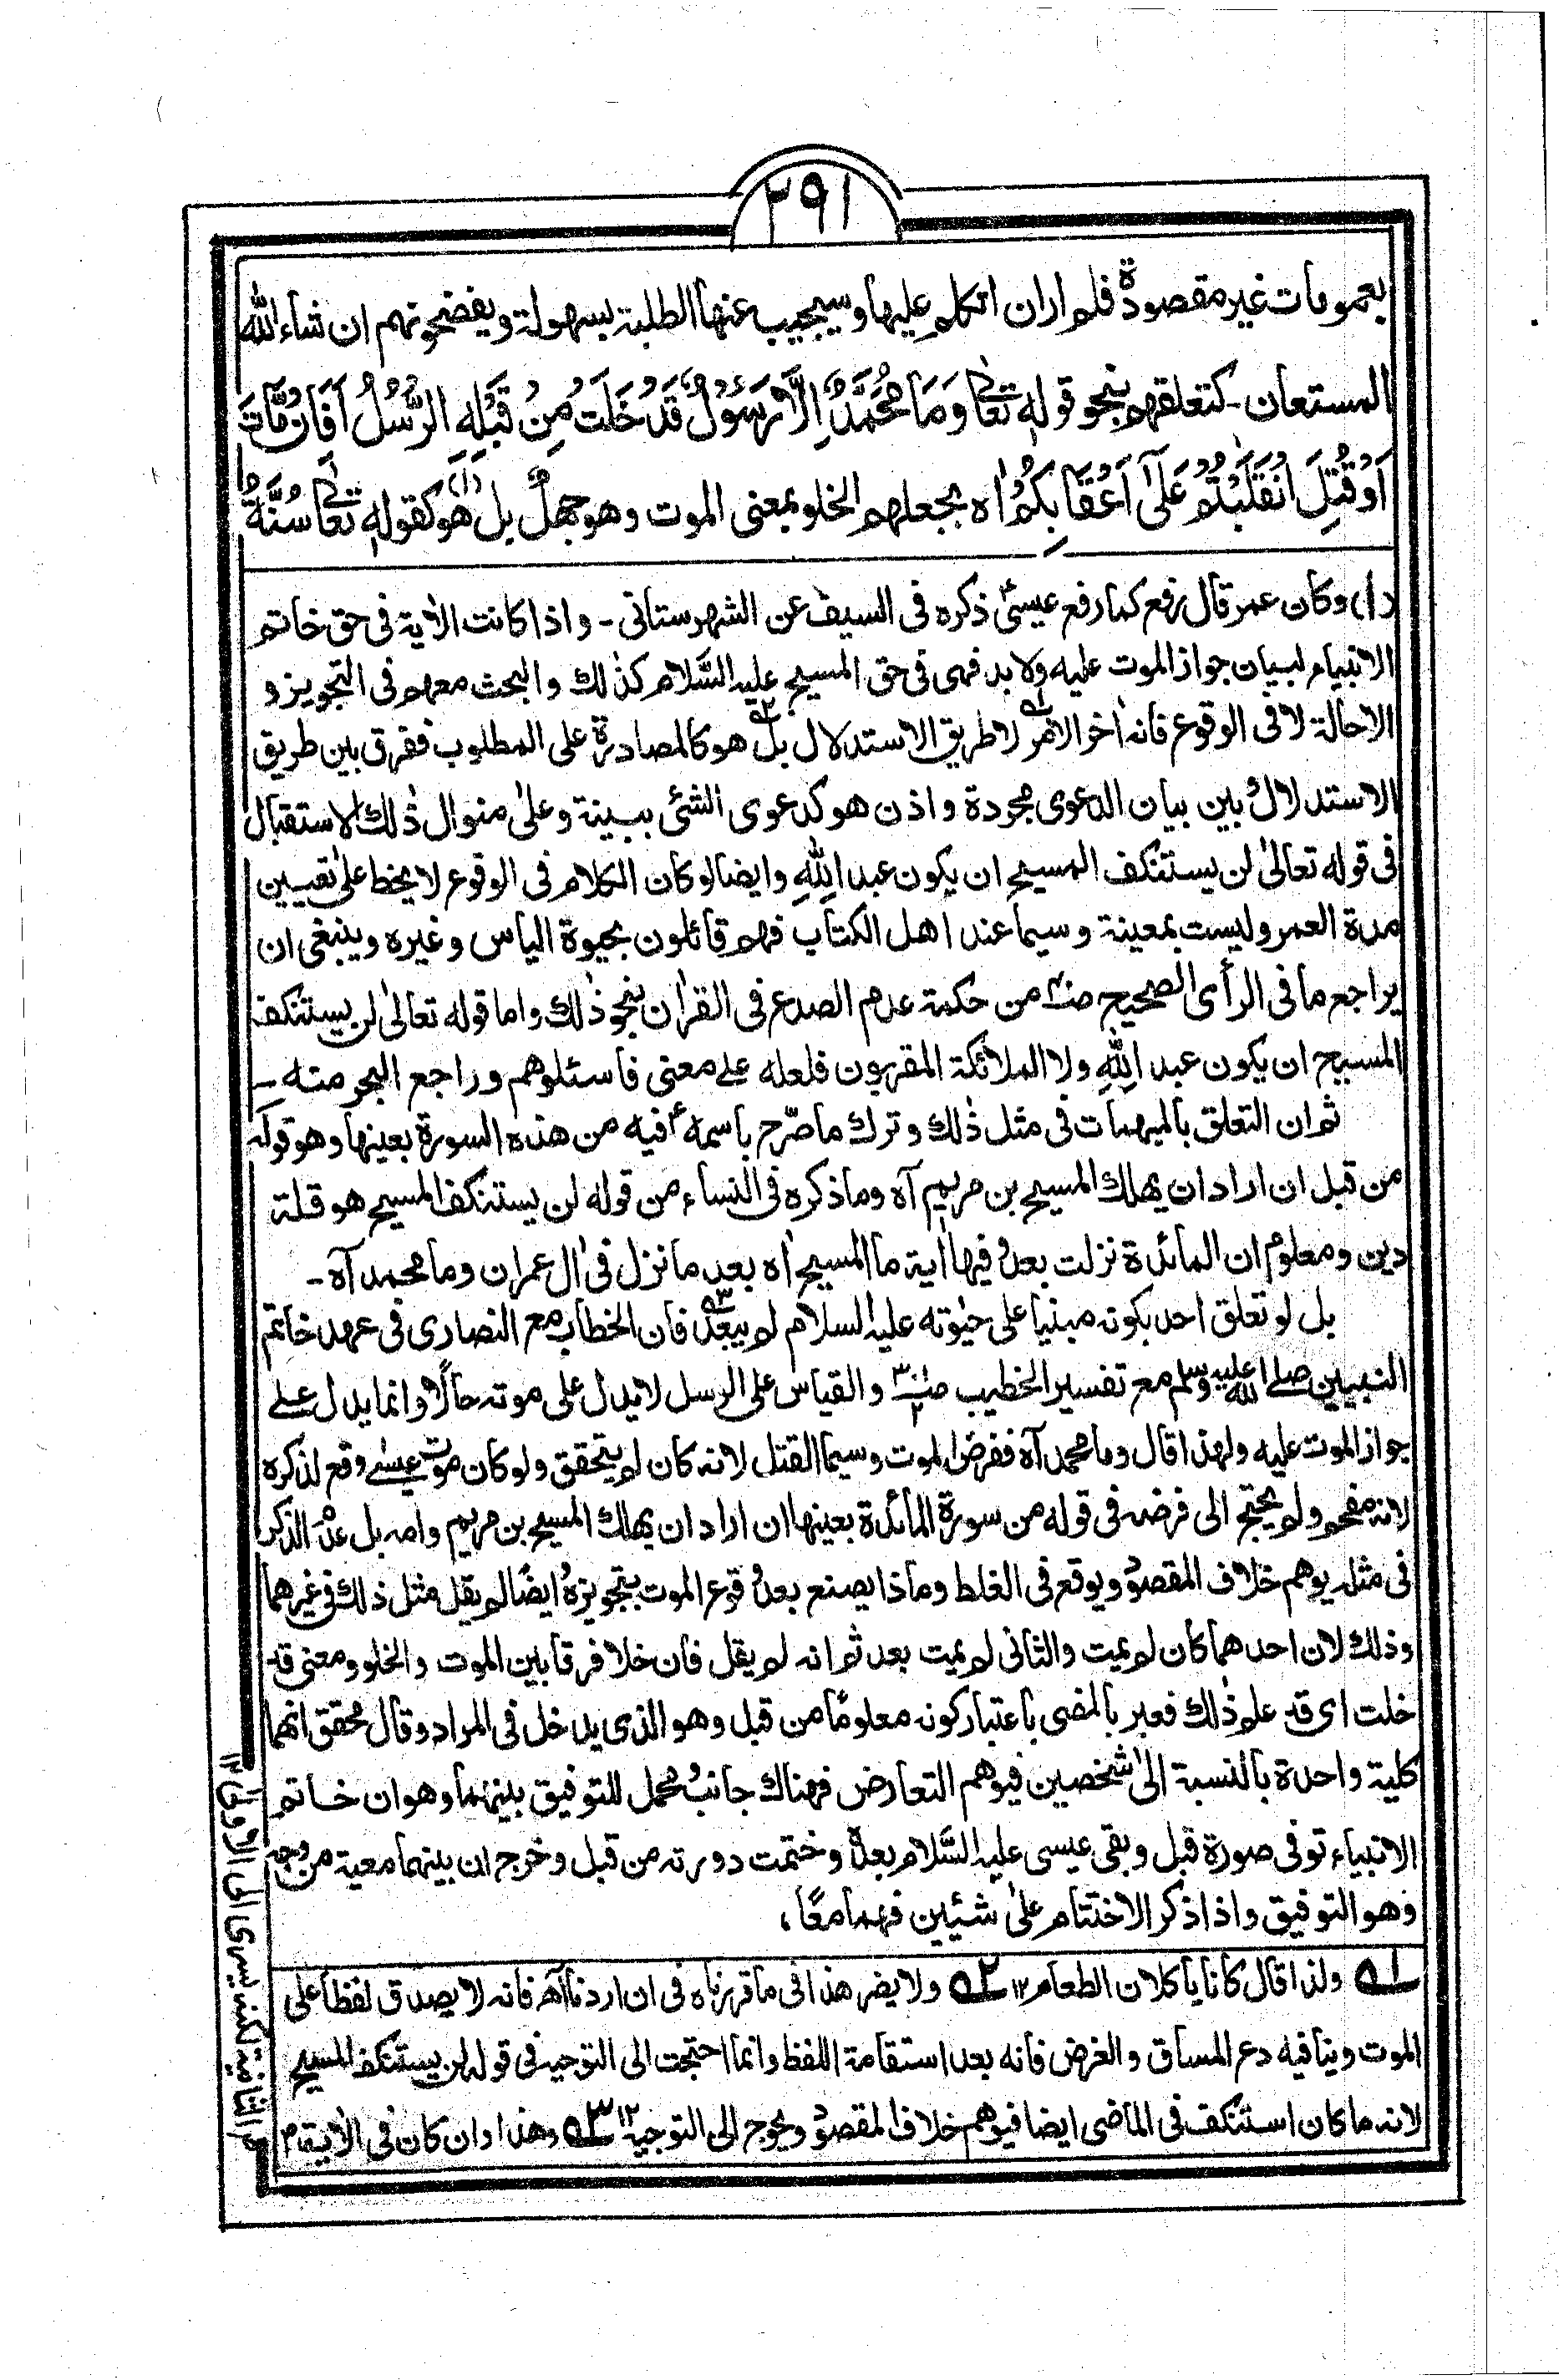 ٢٩١
بعمومات غير مقصودة فلم ار ان اتكلم عليها وسيجيب عنها الطلبة بسهولة ويفضحونهم ان شاء الله
المستعان - كتعلقهم بنحو قوله تعالى وَمَا مُحَمَّدٌ اِلَّا رَسُوْلٌ قَدْ خَلَتْ مِنْ قَبْلِهِ الرُّسُلُ اَفَاِنْ مَّاتَ
اَوْ قُتِلَ انْقَلَبْتُمْ عَلٰۤى اَعْقَابِكُمْ اه بجعلهم الخلو بمعنى الموت وهو جهل بل (١) هو كقوله تعالى سُنَّةُ
(١) وكان عمر قال رفع كما رفع عيسىٰ ذكره فى السيف عن الشهرستانى - واذا كانت الاٰية فى حق خاتم
الانبياء لبيان جواز الموت عليه ولا بد فهى فى حق المسيح عليه السَّلام كذٰلك والبحث معهم فى التجويز و
الاحالة لا فى الوقوع فانه اٰخر الامر ١ لا طريق الاستدلال بل ٢ هو كالمصادرة على المطلوب ففرق بين طريق
الاستدلال وبين بيان الدعوى مجردة واذن هو كدعوى الشئ ببينة وعلىٰ منوال ذٰلك الاستقبال
فى قوله تعالىٰ لن يستنكف المسيح ان يكون عبد اللهِ وايضا لو كان الكلام فى الوقوع لا يخط علىٰ تعيين
مدة العمر وليست بمعينة وسيما عند اهل الكتاب فهم قائلون بحيوة الياس وغيره وينبغى ان
يراجع ما فى الرأى الصحيح من حكمة عدم الصدع فى القراٰن بنحو ذٰلك واما قوله تعالىٰ لن يستنكف
المسيح ان يكون عبد اللهِ ولا الملائكة المقربون فلعله علے معنى فاسئلوهم وراجع البحر منه -
ثم ان التعلق بالمبهمات فى مثل ذٰلك وترك ما صرّح باسمه فيه من هذه السورة بعينها وهو قوله
من قبل ان اراد ان يهلك المسيح بن مريم اٰه وما ذكره فى النساء من قوله لن يستنكف المسيح هو قلة
دين ومعلوم ان المائدة نزلت بعد وفيها اٰية ما المسيح اٰه بعد ما نزل فى اٰل عمران وما محمد اٰه -
بل لو تعلق احد بكونه مبنيا على حيٰوته عليه السلام لم يبعد ٣ فان الخطاب مع النصارى فى عهد خاتم
النبيين صلے الله عليه وسلم مع تفسير الخطيب والقياس على الرسل لا يدل على موته حالًا وانما يدل علے
جواز الموت عليه ولهذا قال وما محمد اٰه ففرض الموت وسيما القتل لانه كان لم يتحقق ولو كان موت عيسے وقع لذكره
لانه مفحم ولم يحتج الى فرضه فى قوله من سورة المائدة بعينها ان اراد ان يهلك المسيح بن مريم وامه بل عدم الذكر
فى مثله يوهم خلاف المقصود ويوقع فى الغلط وماذا يصنع بعد وقوع الموت بتجويزه ايضًا لم يقل مثل ذلك فى غيرهما
وذلك لان احدهما كان لم يمت والثانى لم يمت بعد ثم انه لم يقل فان خلا فرقا بين الموت والخلو ومعنى قد
خلت اى قد علم ذٰلك فعبر بالمضى باعتبار كونه معلومًا من قبل وهو الذى يدخل فى المراد وقال محقق انهما
كلية واحدة بالنسبة الىٰ شخصين فيوهم التعارض فهناك جانب محمل للتوفيق بينهما وهو ان خاتم
الانبياء توفى صورة قبل وبقى عيسى عليه السَّلام بعدهٗ وختمت دورته من قبل وخرج ان بينهما معية من وجه
وهو التوفيق واذا ذكر الاختتام علىٰ شئيين فهما معًا،
١ ولذا قال كانا ياكلان الطعام ١٢ ٢ ولا يضر هذا فى ما قررناه فى ان اردنا اٰه فانه لا يصدق لفظا على
الموت وينافيه دع المساق والغرض فانه بعد استقامة اللفظ وانما احتجت الى التوجيه فى قوله لن يستنكف المسيح
لانه ما كان استنكف فى الماضى ايضا فيوهم خلاف المقصود ويحوج الى التوجيه ١٢ ٣ وهذا وان كان فى الاٰية
الثانية لكنه يسرى الى الاولىٰ ١٢